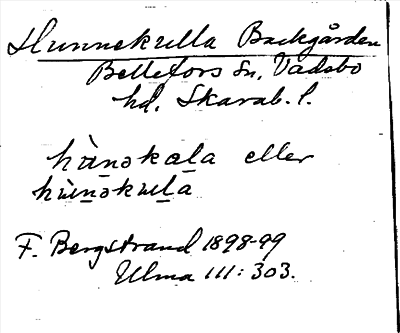 Hunnekulla Backgården
Bellefors sn, Vadsbo
hd, Skarab. l.
hùn̲ɔkal̲a eller
hùn̲ɔkul̲a
F. Bergstrand 1898-99
Ulma 111: 303.